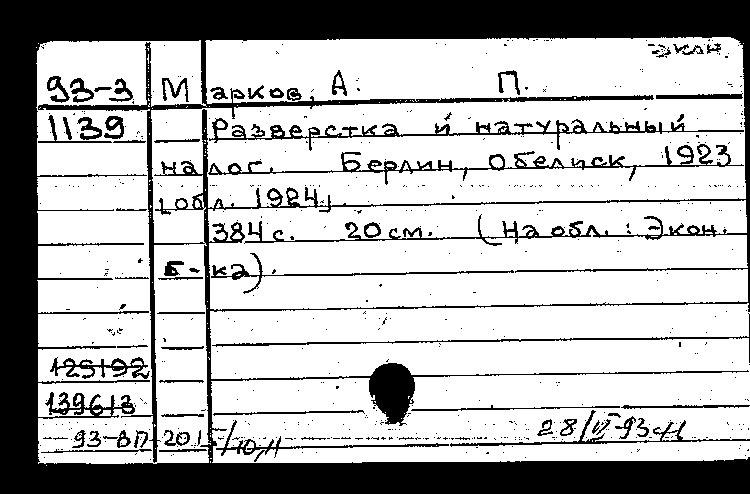 Экон.
93-3 Марков, А. П.
1139 Разверстка и натуральный
налог. Берлин, Обелиск, 1923
[обл. 1924]
384 с. 20 см. (На обл.: Экон.
б-ка).
125192
139613
93-ВП 201
28/VI-93